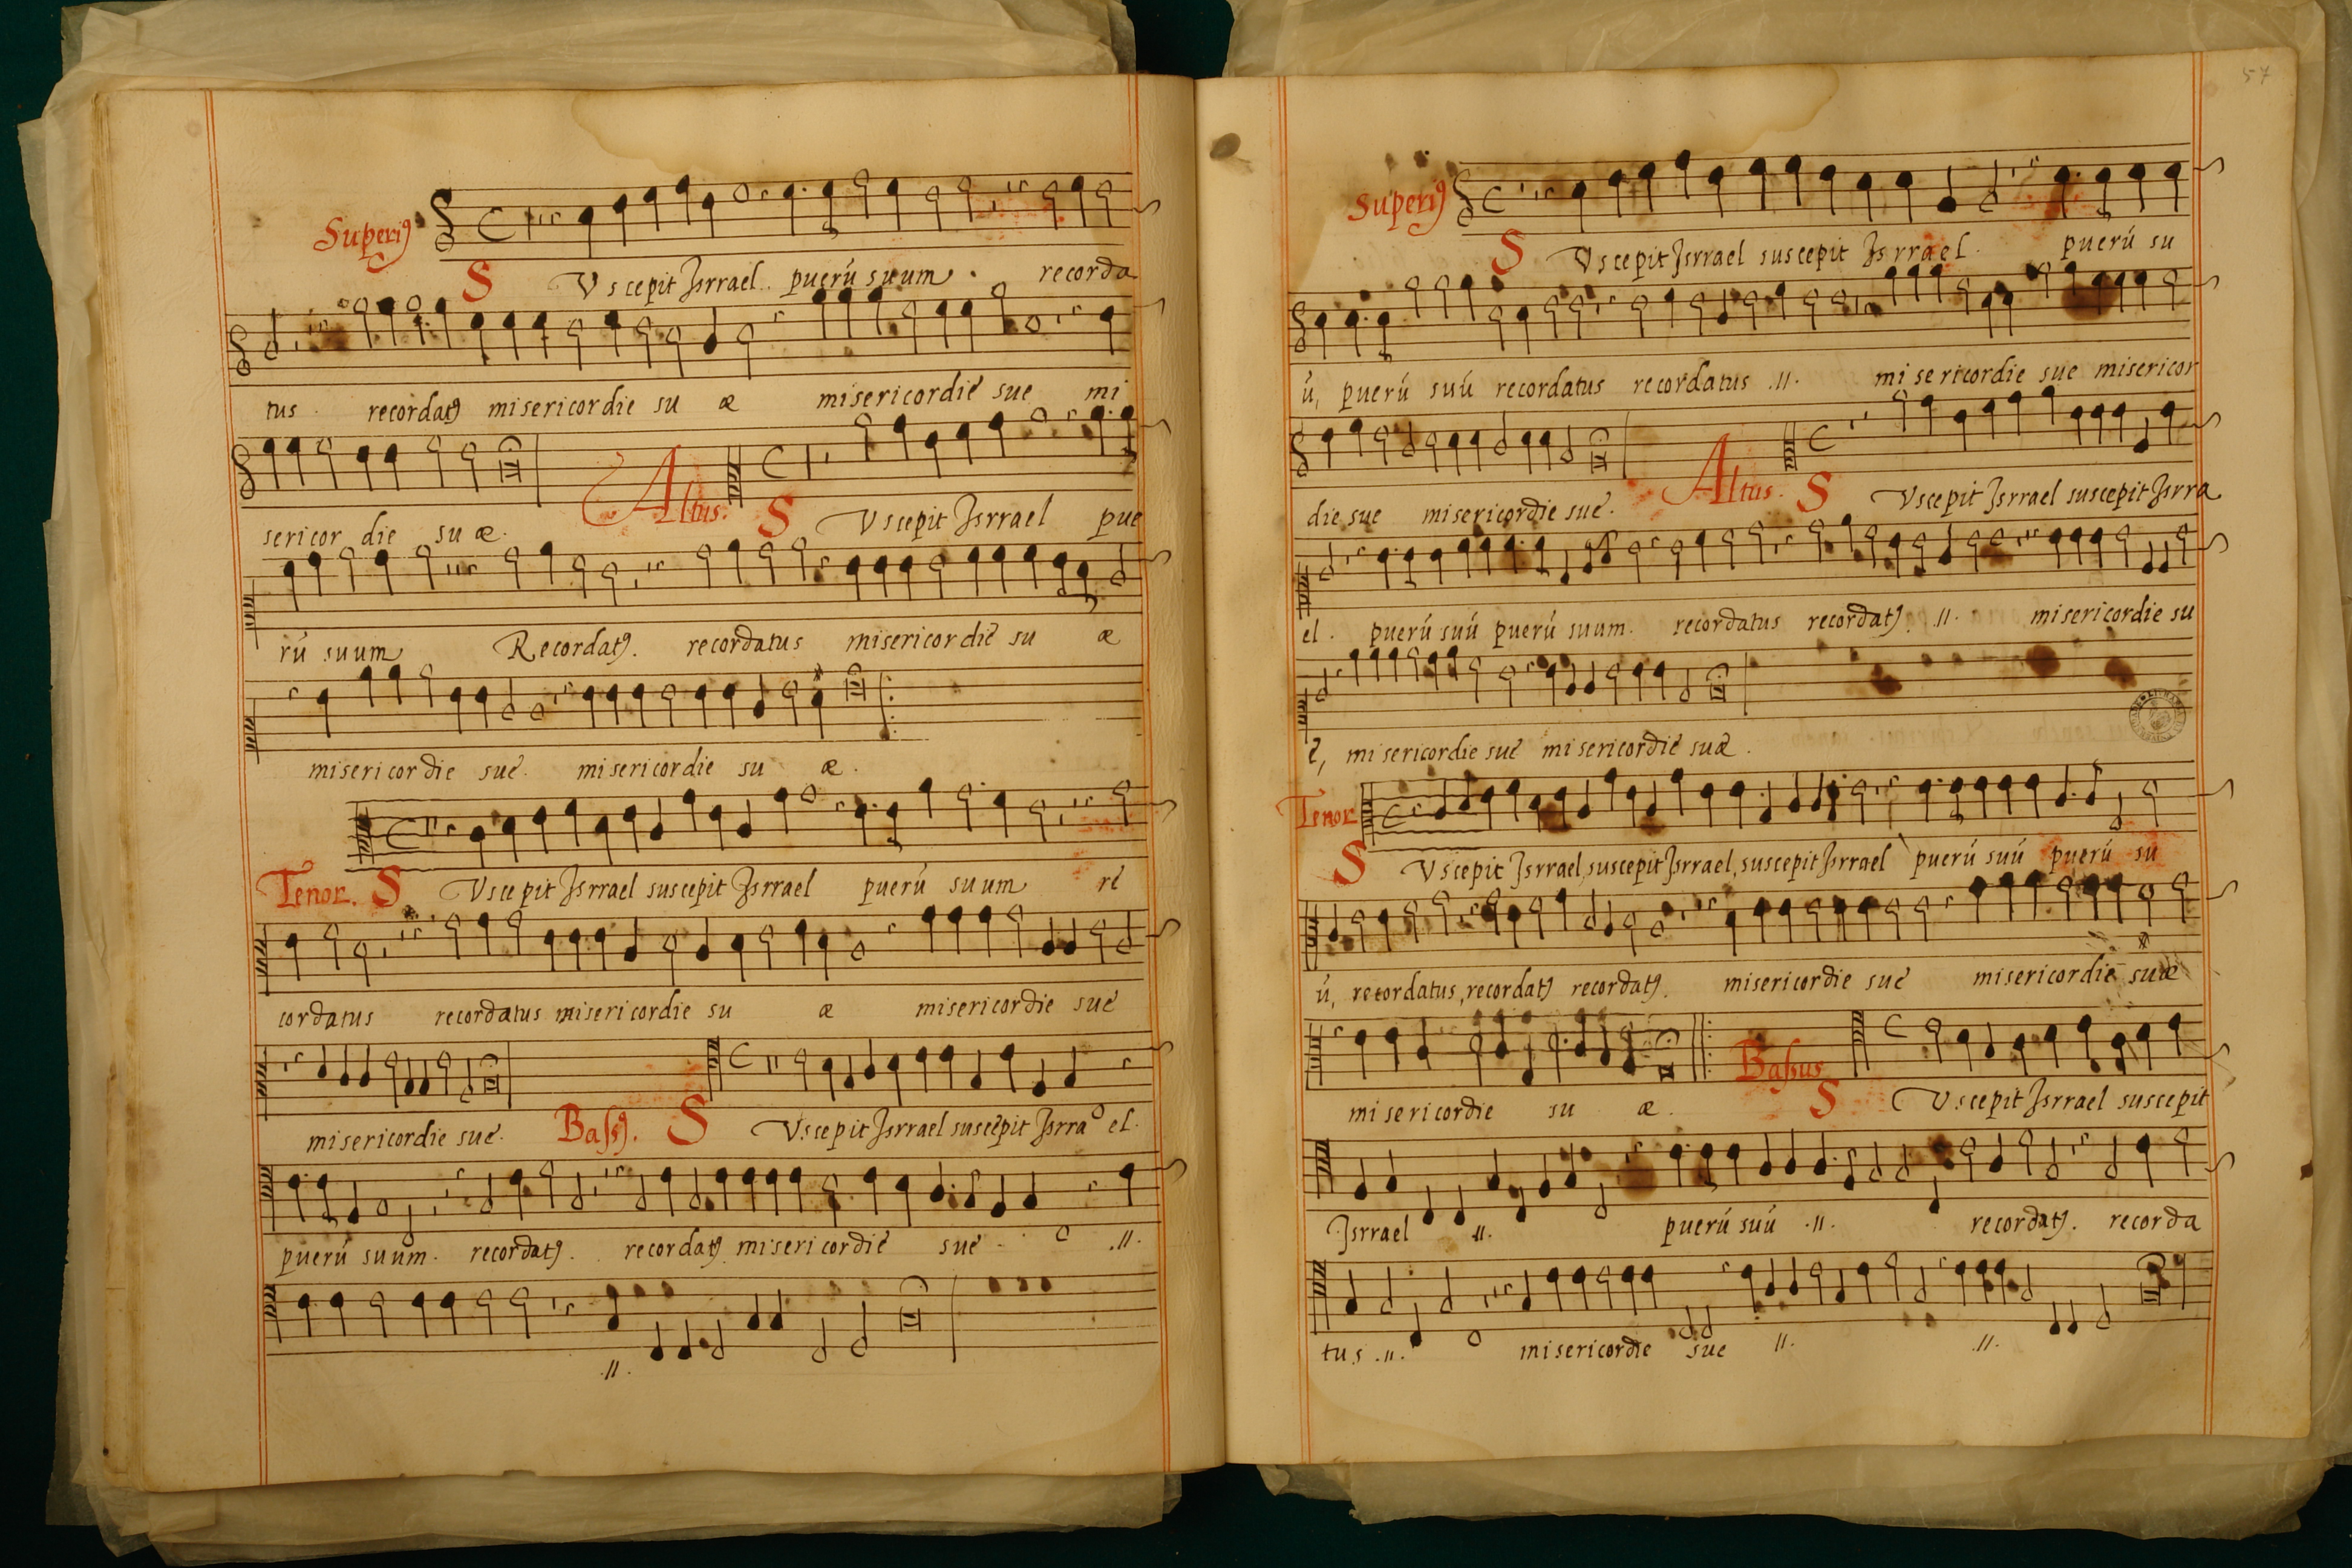 Superiꝰ
S Uscepit Jsrrael. puerú suum. recorda
tus. recordatꝰ misericordie su æ misericordie sue mi
sericor die su æ.
Altus. S Uscepit Jsrrael pue
rú suum Recordatꝰ. recordatus misericordie su æ
misericordie sue. misericordie su æ.
Tenor. S Uscepit Jsrrael suscepit Jsrrael puerú suum re
cordatus recordatus misericordie su æ misericordie sue
misericordie sue.
Bassꝰ. S Uscepit Jsrrael suscepit Jsrra el.
puerú suum. recordatꝰ. recordatꝰ misericordie sue. .11.
.11.
57
Superiꝰ
S Uscepit Jsrrael suscepit Jsrrael. puerú su
ú, puerú suú recordatus recordatus .11. misericordie sue misericor
die sue misericordie sue.
Altus. S Uscepit Jsrrael suscepit Jsrra
el. puerú suú puerú suum. recordatus recordatꝰ. .11. misericordie su
e, misericordie sue misericordie suæ.
Tenor
S Uscepit Jsrrael, suscepit Jsrrael, suscepit Jsrrael puerú suú puerú su
ú, recordatus, recordatꝰ recordatꝰ. misericordie sue misericordie suæ
misericordie su æ.
Bassus S Uscepit Jsrrael suscepit
Jsrrael .11. puerú suú .11. recordatꝰ. recorda
tus .11. misericordie sue .11. .11.